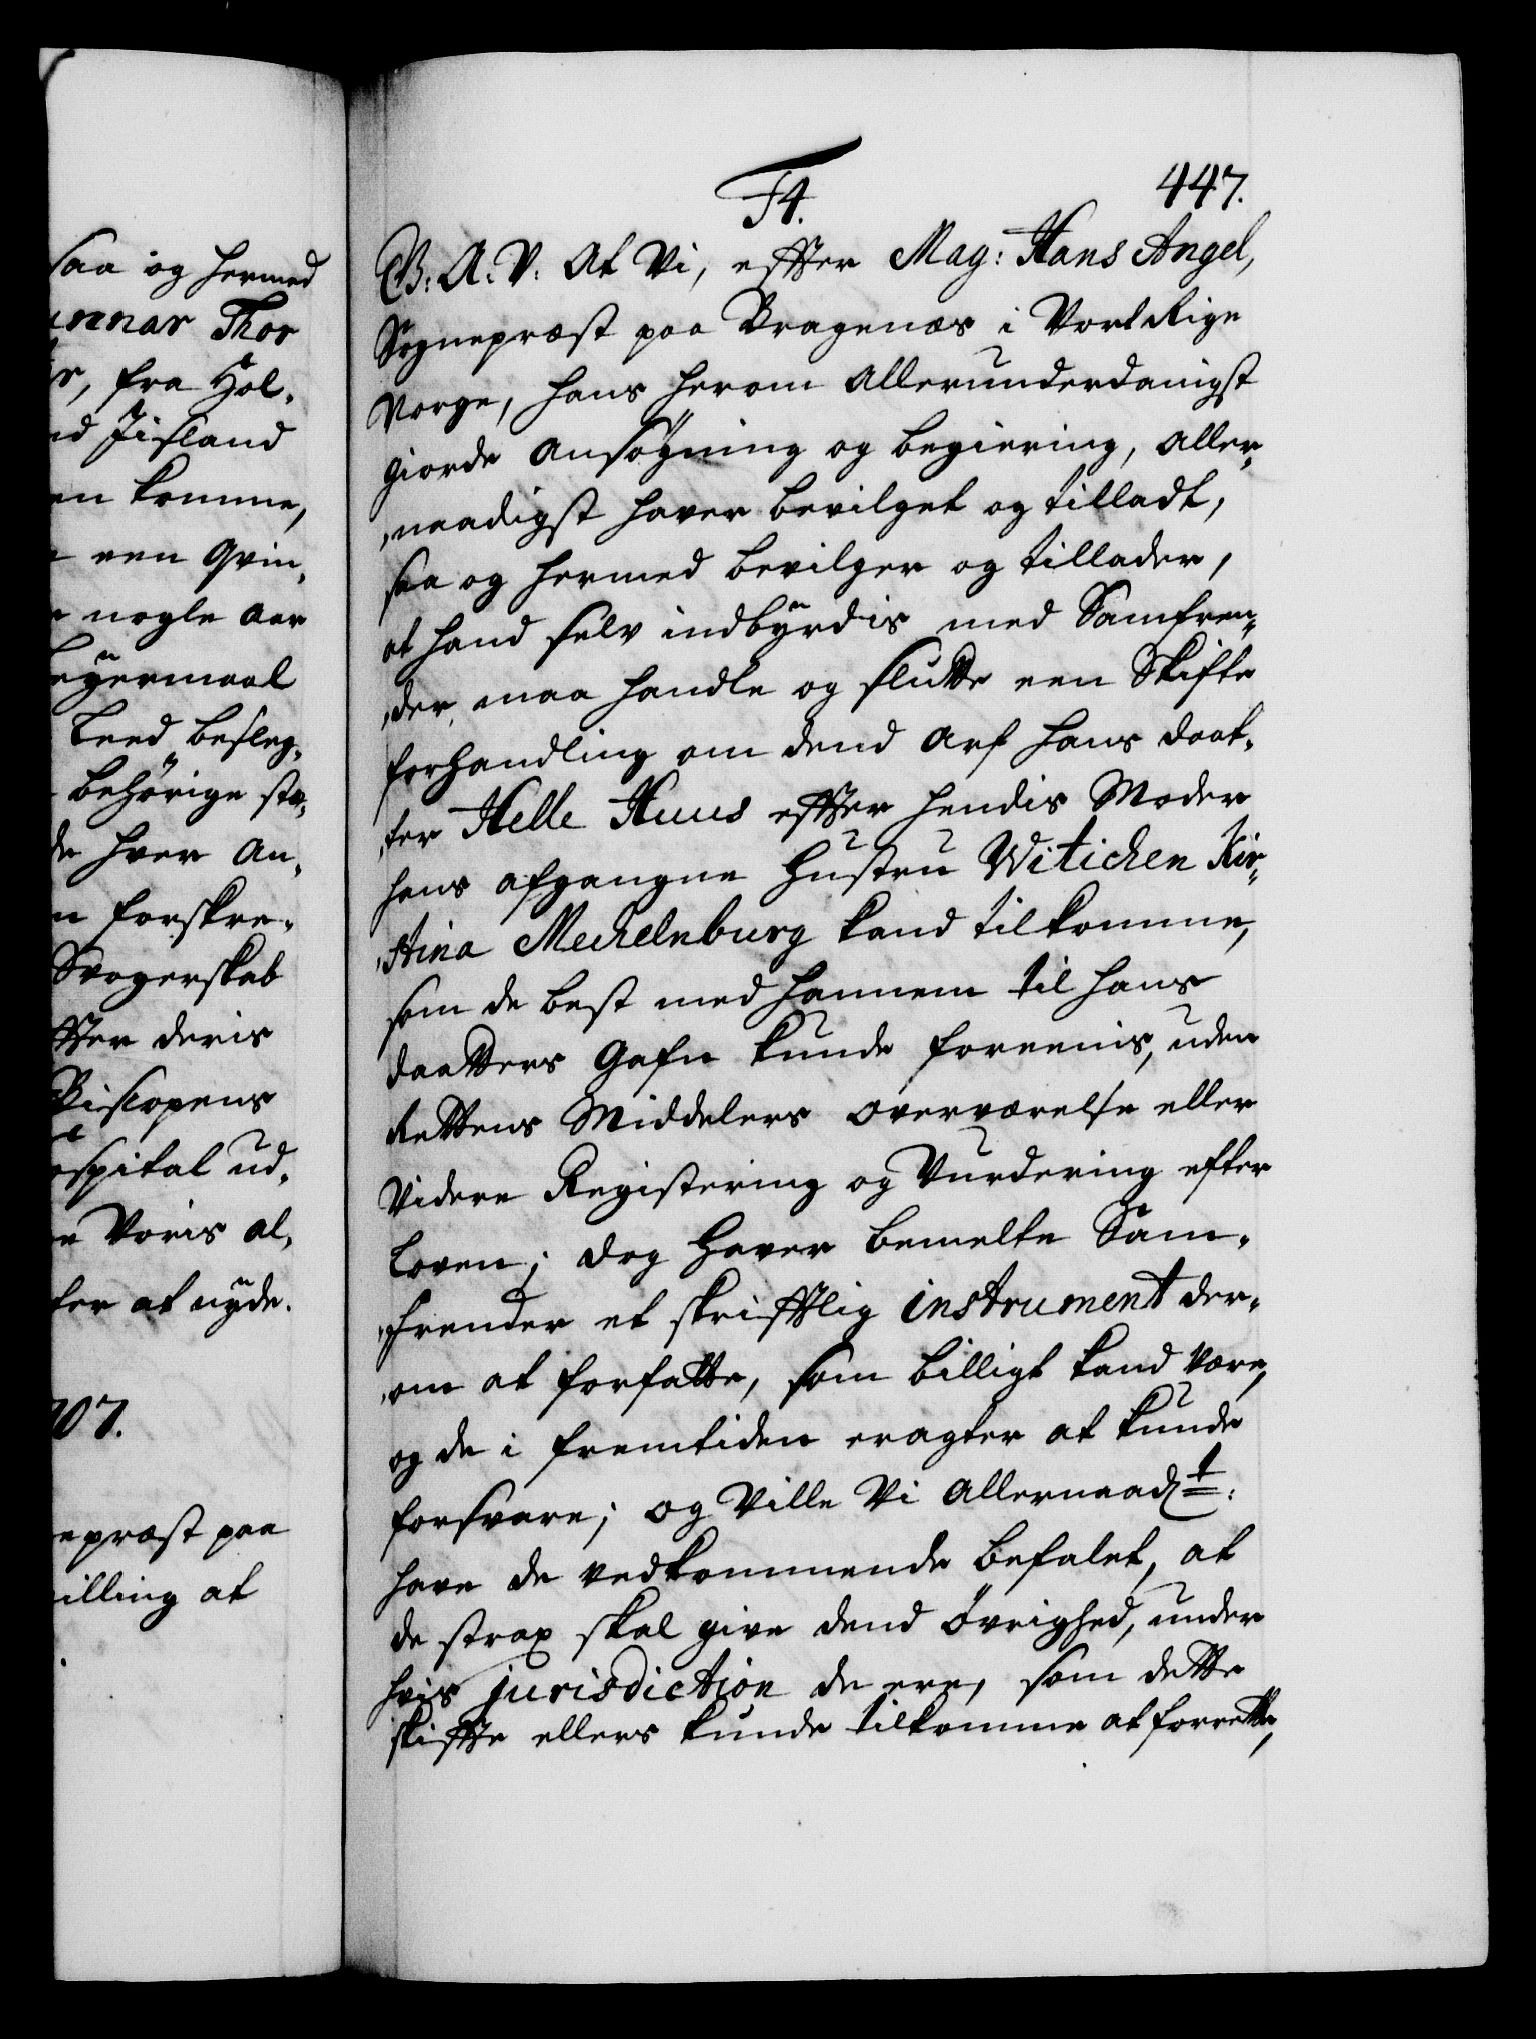 saa og hermed
unnar Thor
r, fra Hol„
nd Jisland
en komme,
een Qvin„
nogle Aar
eyermaal
Leed besleg„
behörige stæ„
de hver An„
n forskre„
Svogerskab
ffter deris
Biscopens
ospital ud„
e Voris al„
ter at nyde.
707.
nepræst paa
villing at
F4.
447.
G: A: V: At Vi, effter Mag: Hans Angel,
Sognepræst paa Bragenæs i Vort Rige
Norge, hans herom allerunderdanigst
giorde Ansøgning og begiering, aller„
„naadigst haver bevilget og tilladt,
saa og hermed bevilger og tillader,
at hand selv indbÿrdis med Samfren„
„der, maa handle og slutte een Skifte
forhandling om dend Arf hans daat„
„ter Helle Huus effter hendis Moder
hans afgangne Hustru Witichen Kir„
„stina Mechelnburg kand tilkomme,
som de best med hannem til hans
daatters Gafn kunde foreenis, uden
Rettens Middelers overværelse eller
Videre Registering og Vurdering efter
Loven; dog haver bemelte Sam„
„frender et skrifftlig instrument der„
„om at forfatte, som billigt kand være,
og de i fremtiden eragter at kunde
forsvare; og Ville Vi Allernaadt:
have de vedkommende befalet, at
de strax skal give dend Øvrighed, under
hvis jurisdiction de ere, som dette
skiffte ellers kunde tilkomme at forrette,